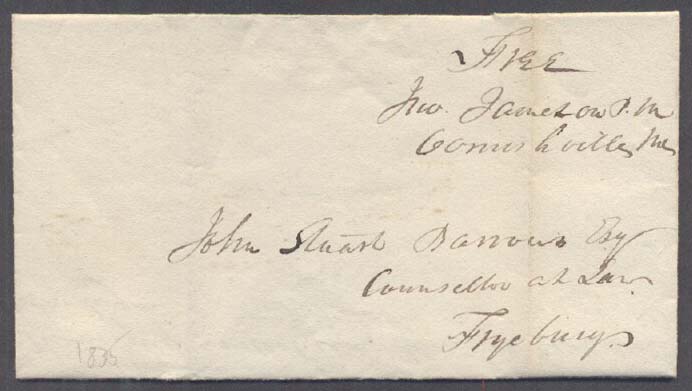 Free
Jno. Jameson P.M
Cornishville, Me
John Stuart Barrows Esq
Counsellor at Law
Fryeburg.
1835